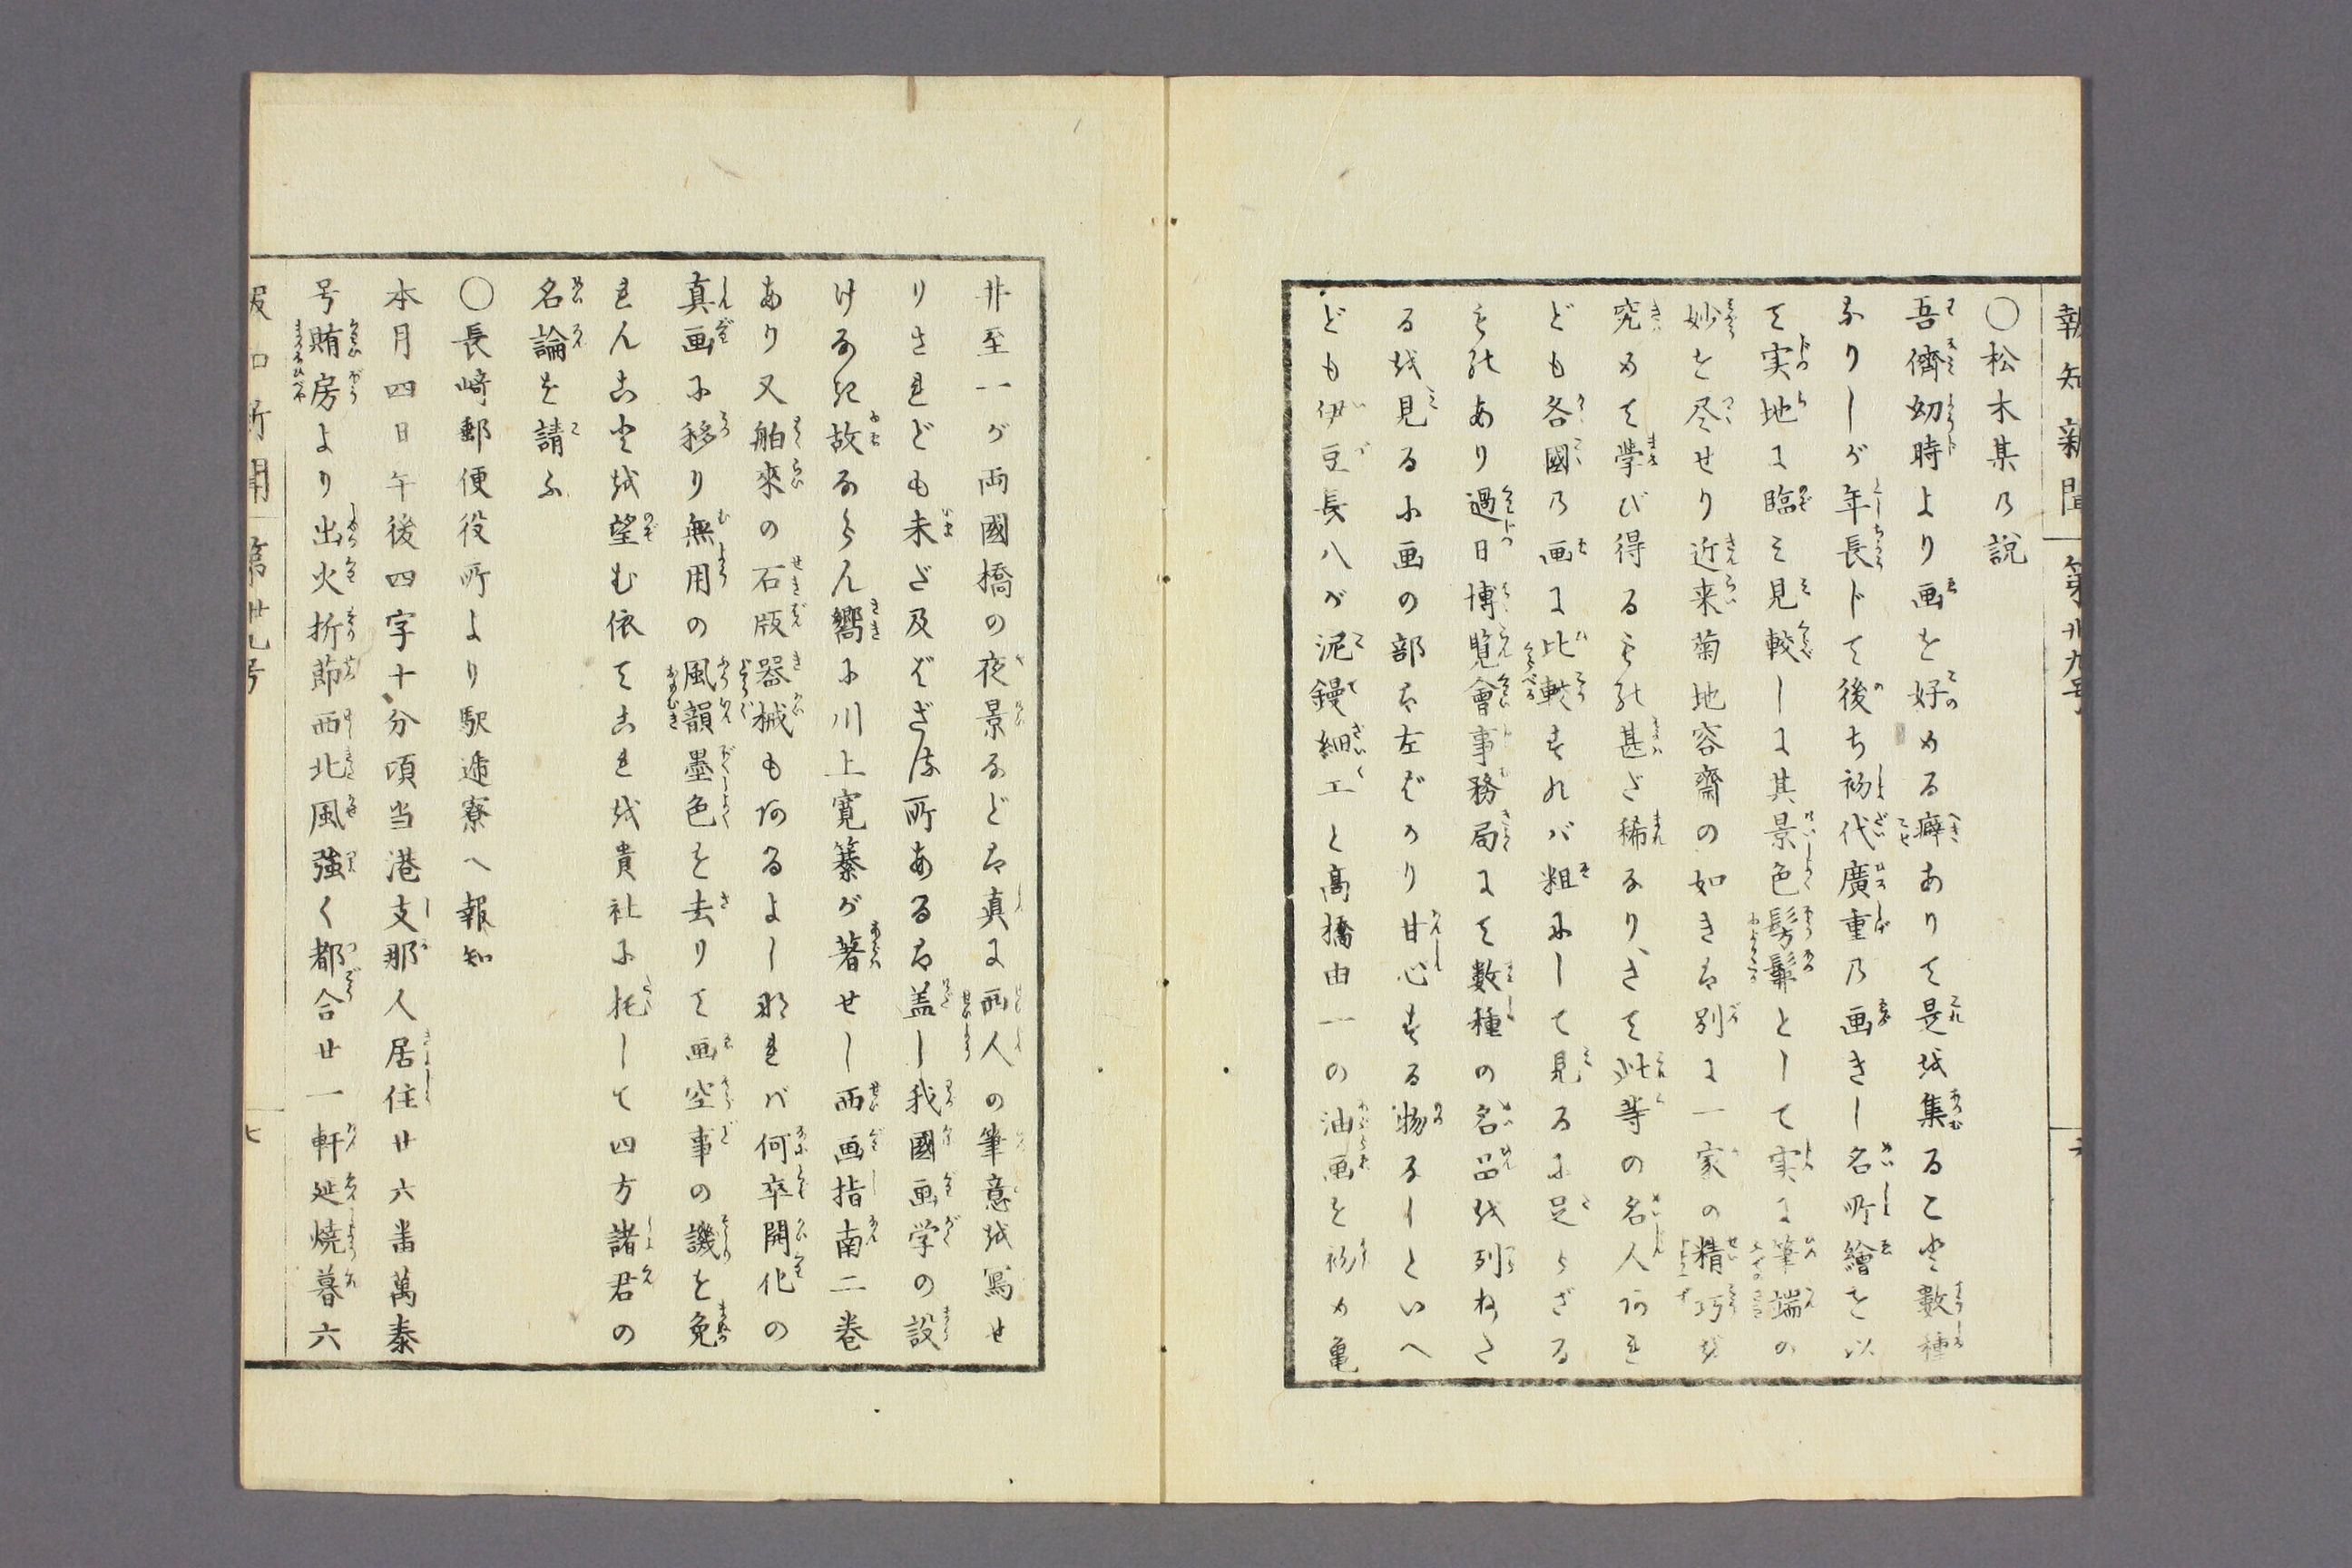 報知新聞 第廿九号
〇松木某乃説
吾儕幼時より画を好める癖ありて是越集ること数種
なりしが年長じて後ち初代廣重乃画きし名所繪を以
て実地に臨そ見較しに其景色髣髴として実に筆端の
妙を尽せり近来菊地容齋の如きは別に一家の精巧を
究めて学び得るもの甚ざ稀なり、さて此等の名人あれ
ども各國乃画に比較すれバ粗にして見るに足らざる
ものあり過日博覧會事務局にて数種の名品を列ねた
るを見るに画の部は左ばかり甘心する物なしといへ
ども伊豆長八が泥鏝細工と高橋由一の油画を初め亀
井至一が両國橋の夜景などは真に西人の筆意を寫せ
りされども未ざ及ばざる所あるは盖し我國画学の設
けなき故ならん嚮に川上寛纂が著せし西画指南二巻
あり又舶來の石版器械もあるよし那れバ何卒開化の
真画に移り無用の風韻墨色を去りて画空事の譏を免
れんこと越望む依てこれを貴社に托して四方諸君の
名論を請ふ
〇長崎郵便役所より駅逓寮へ報知
本月四日午後四字十分頃当港支那人居住廿六番萬泰
号賄房より出火折節西北風強く都合廿一軒延焼暮六
報知新聞 第廿九号 七